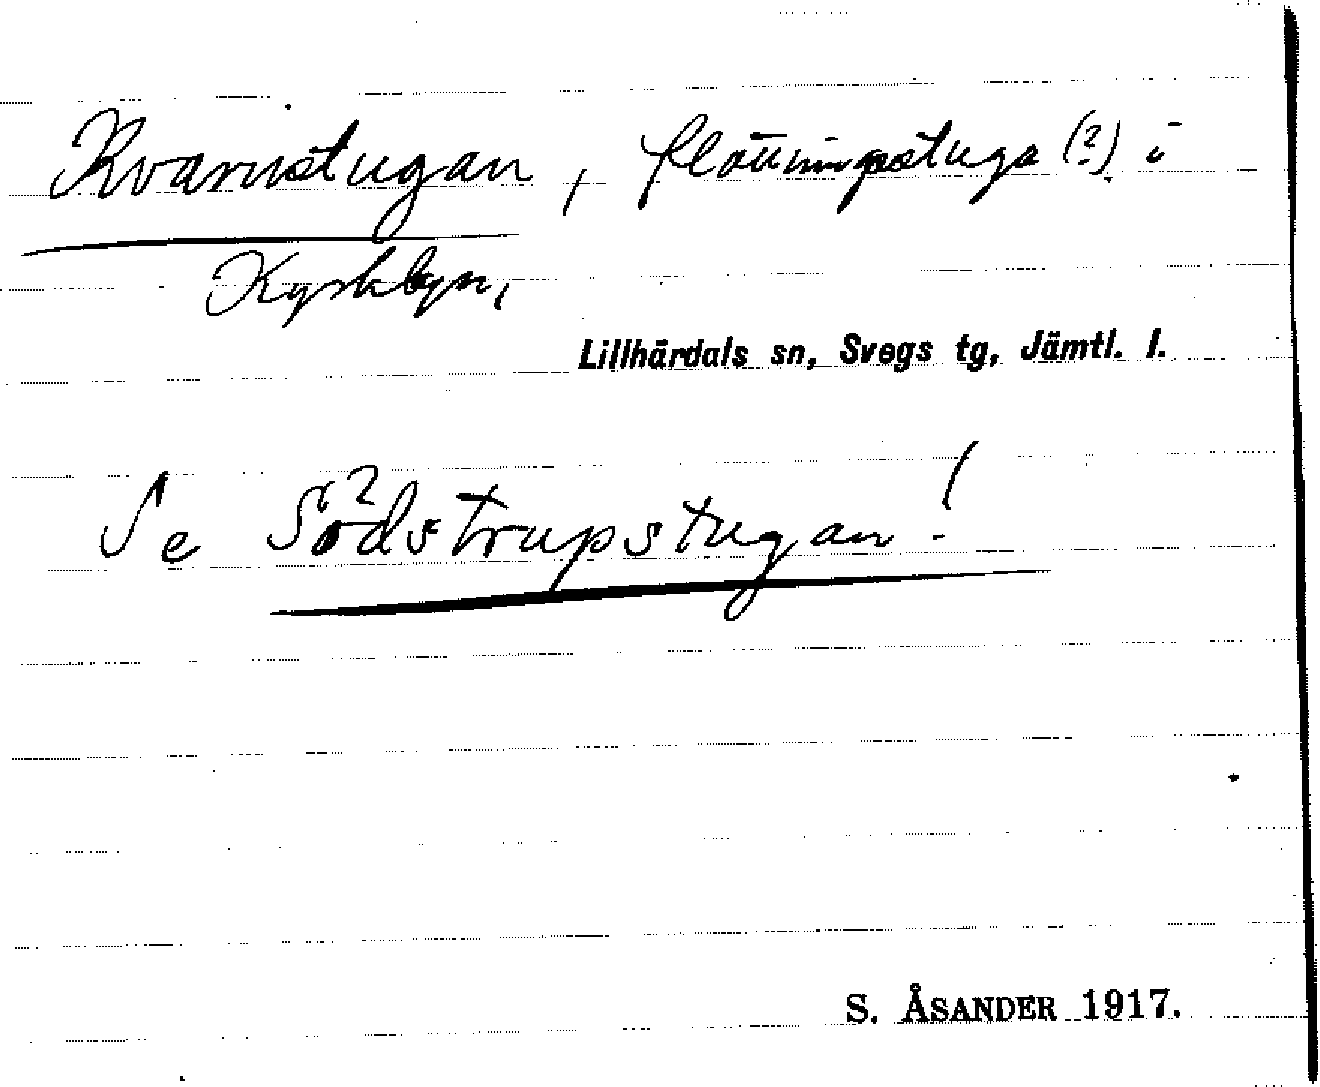 Kvarnstugan, flottningsstuga (?) i
Kyrkbyn,
Lillhärdals sn, Svegs tg, Jämtl. l.
Se Södstrupstugan!
S. ÅSANDER 1917.